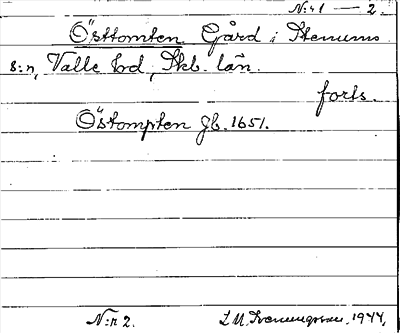 N:r 1 — 2.
Östtomten. Gård i Stenums
s:n, Valle hd, Skb. län.
forts.
Östompten Jb. 1651.
N:r 2. 1944.